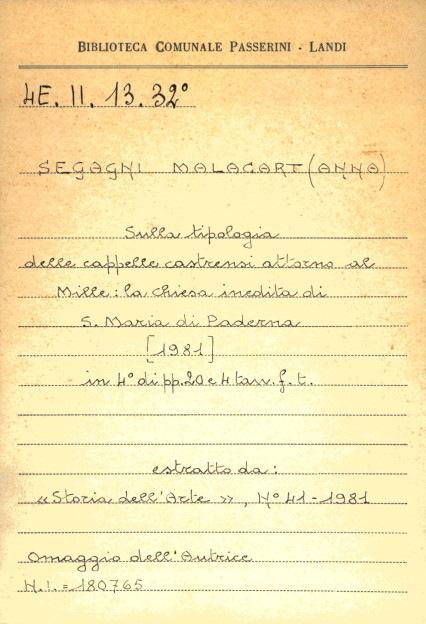 BIBLIOTECA COMUNALE PASSERINI - LANDI
4E. II. 13. 32°
SEGAGNI MALACART (ANNA)
Sulla tipologia
delle cappelle castrensi attorno al
Mille: la chiesa inedita di
S. Maria di Paderna
[1981]
in 4° di pp. 20 e 4 tavv. f. t.
estratto da:
«Storia dell'Arte», N° 41-1981
Omaggio dell'Autrice
N. I. = 180765